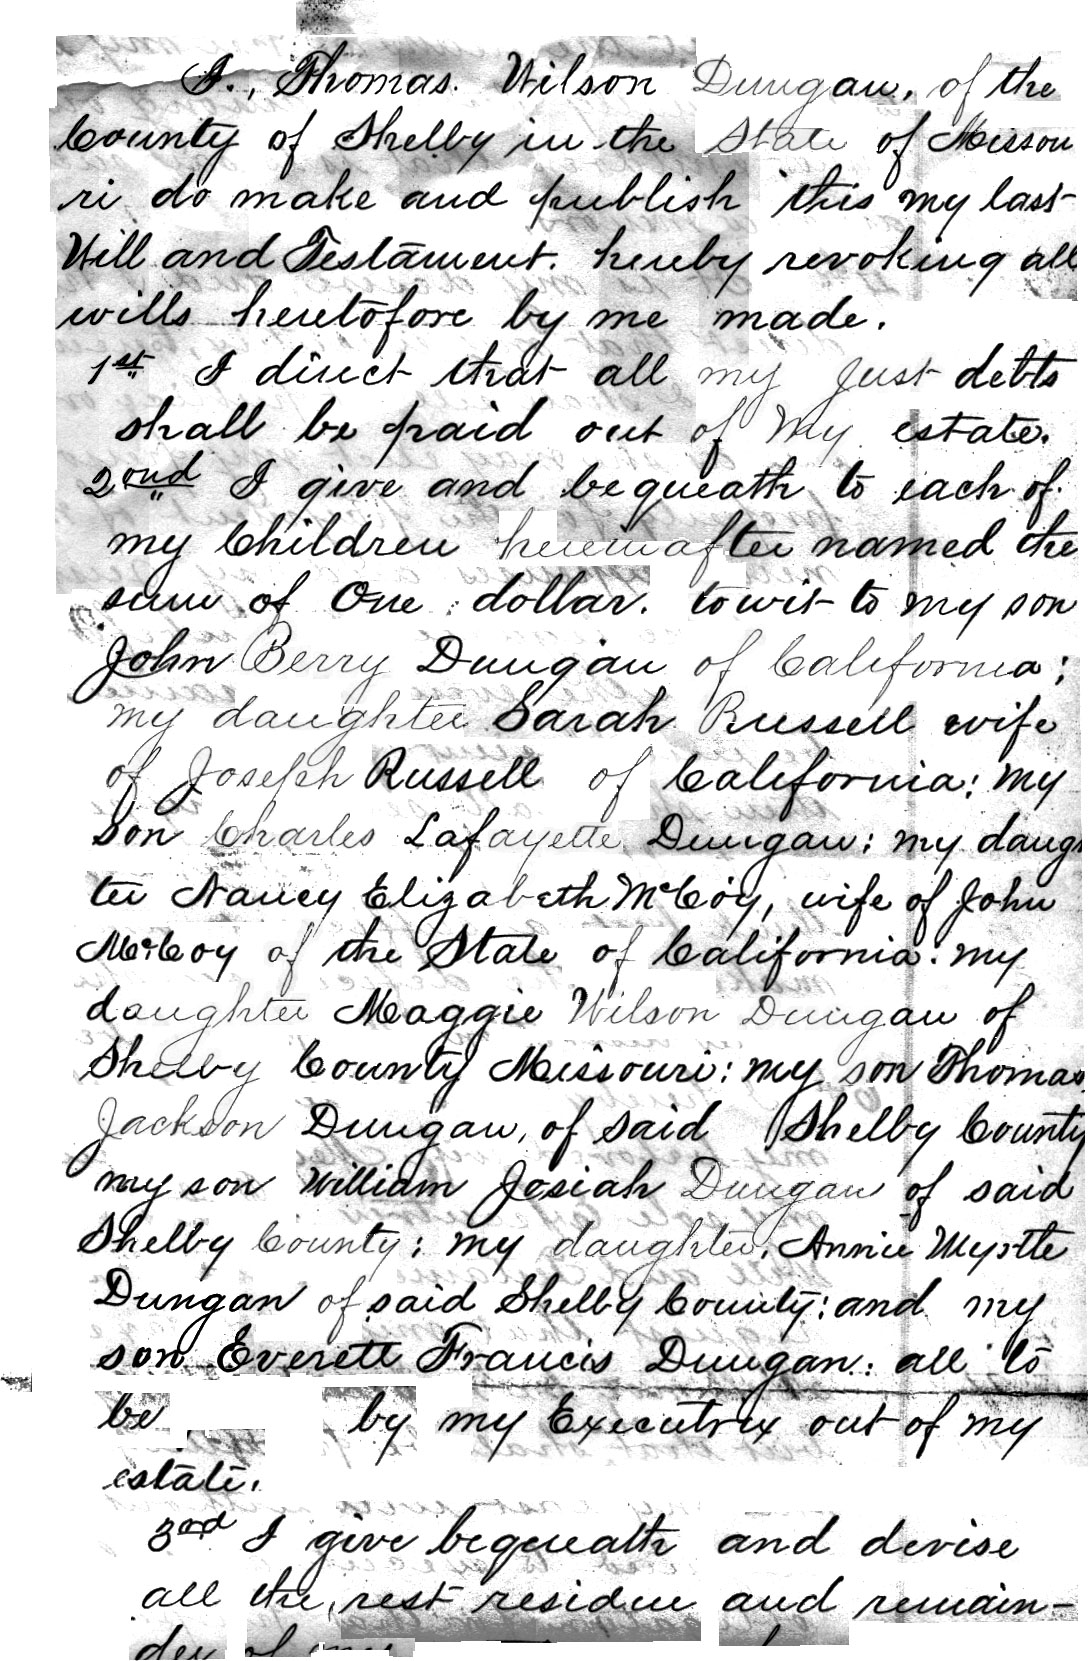 I., Thomas. Wilson Dungan, of the
County of Shelby in the State of Missou
ri do make and publish this my last
Will and Testament. hereby revoking all
wills heretofore by me made.
1st I direct that all my just debts
shall be paid out of my estate.
2ond I give and bequeath to each of
my Children hereinafter named the
sum of One dollar. towit to my son
John Berry Dungan of California;
my daughter Sarah Russell wife
of Joseph Russell of California; my
son Charles Lafayette Dungan; my daugh
ter Nancy Elizabeth McCoy, wife of John
McCoy of the State of California. my
daughter Maggie Wilson Dungan of
Shelby County Missouri; my son Thomas
Jackson Dungan, of said Shelby County
my son William Josiah Dungan of said
Shelby County; my daughter, Annie Myrtle
Dungan of said Shelby County; and my
son Everett Francis Dungan: all to
be by my Executrix out of my
estate.
3ard I give bequeath and devise
all the rest residue and remain-
der of my